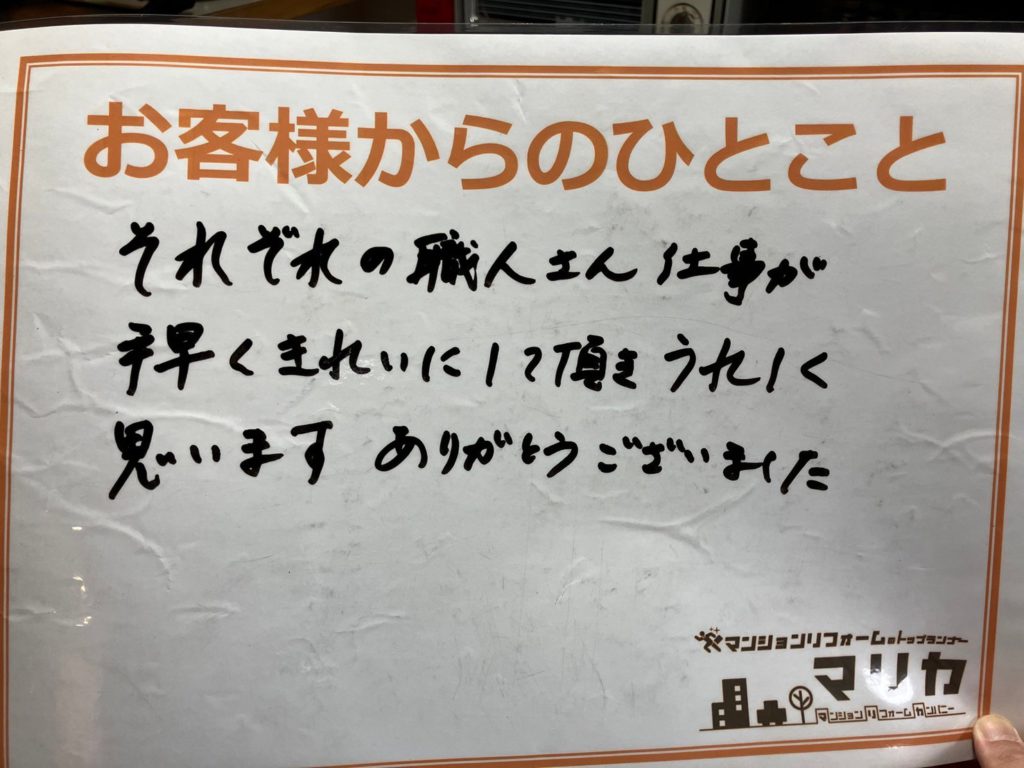 お客様からのひとこと
それぞれの職人さん仕事が
手早くきれいにして頂きうれしく
思います ありがとうございました
マンションリフォームのトップランナー
マリカ
マンションリフォームカンパニー